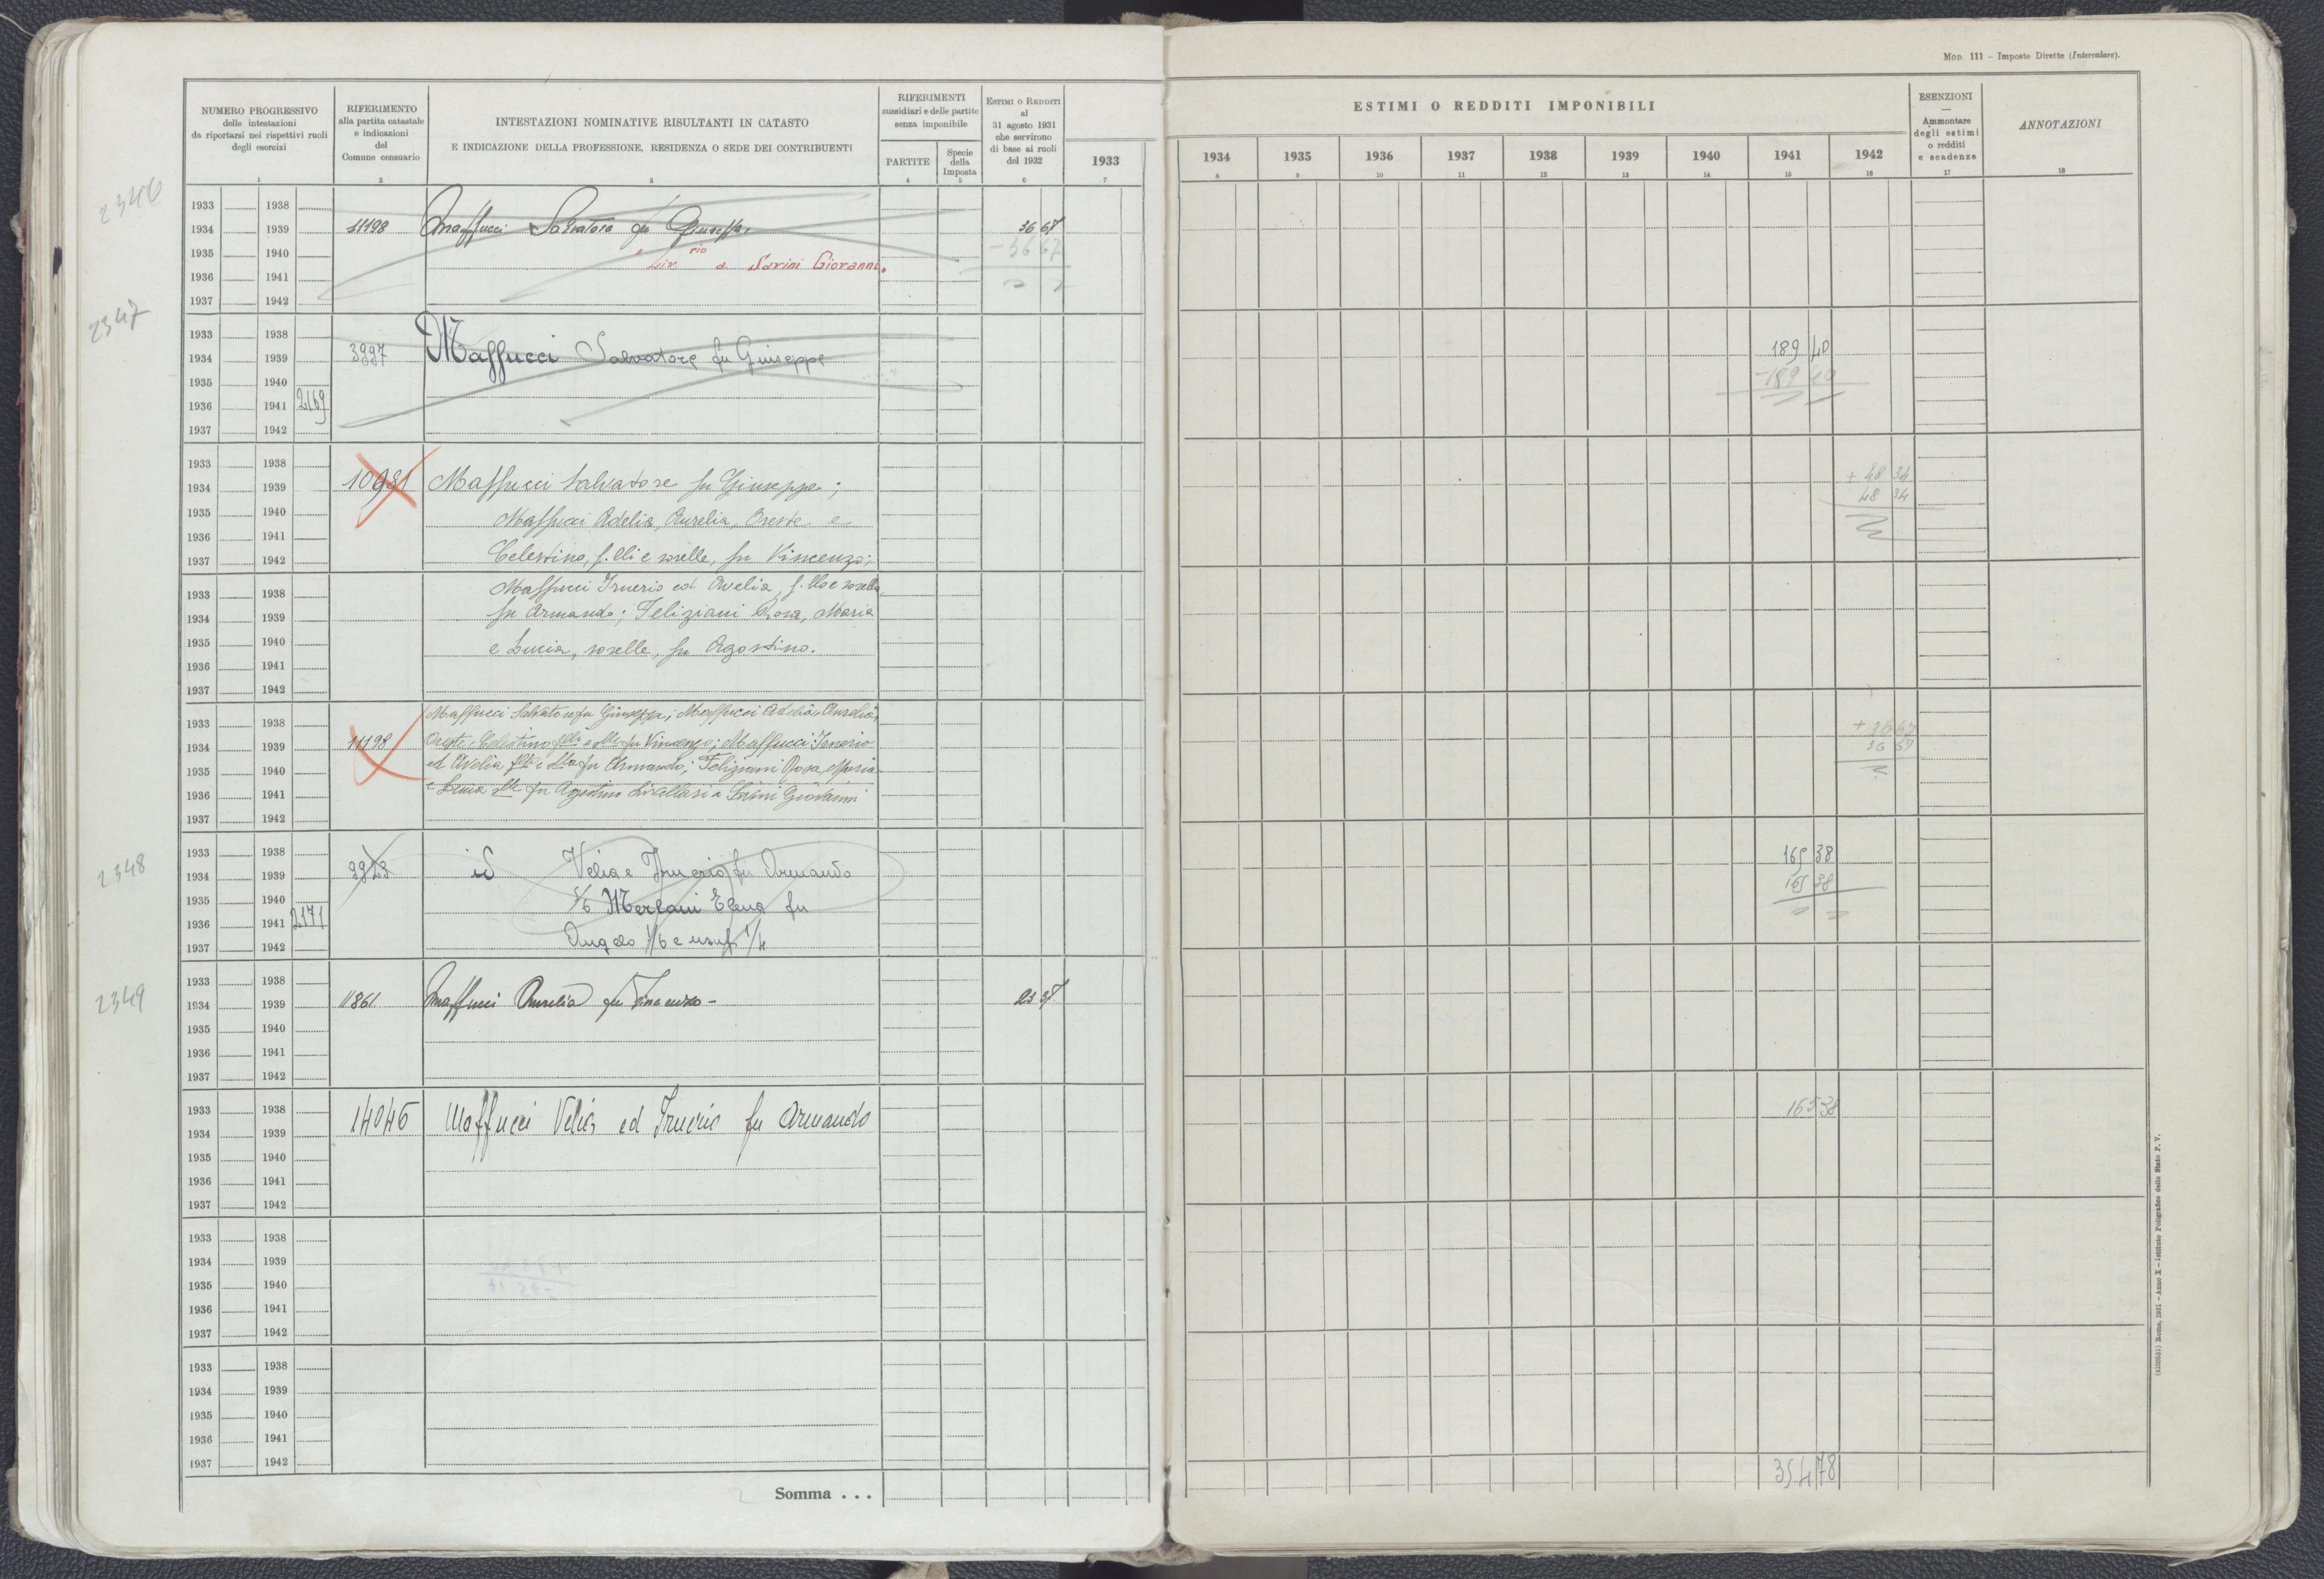 Mod. 111 – Imposte Dirette (Intercalare).
NUMERO PROGRESSIVO
delle intestazioni
da riportarsi nei rispettivi ruoli
degli esercizi
RIFERIMENTO
alla partita catastale
e indicazioni
del
Comune censuario
INTESTAZIONI NOMINATIVE RISULTANTI IN CATASTO
E INDICAZIONE DELLA PROFESSIONE, RESIDENZA O SEDE DEI CONTRIBUENTI
RIFERIMENTI
sussidiari e delle partite
senza imponibile
PARTITE
Specie
della
Imposta
ESTIMI O REDDITI
al
31 agosto 1931
che servirono
di base ai ruoli
del 1932
1933
ESTIMI O REDDITI IMPONIBILI
1934 1935 1936 1937 1938 1939 1940 1941 1942
ESENZIONI
—
Ammontare
degli estimi
o redditi
e scadenze
ANNOTAZIONI
1 2 3 4 5 6 7 8 9 10 11 12 13 14 15 16 17 18
2346
1933 1938
1934 1939 11198 Maffucci Salvatore fu Giuseppe 36 67
1935 1940 Liv.rio a Sarini Giovanni - 36 67
1936 1941
1937 1942
2347
1933 1938
1934 1939 3997 Maffucci Salvatore fu Giuseppe 189 40
1935 1940 - 189 40
1936 1941 2169
1937 1942
1933 1938
1934 1939 10981 Maffucci Salvatore fu Giuseppe; + 48 34
1935 1940 Maffucci Adelia, Aurelia, Oreste e 48 34
1936 1941
1937 1942 Celestino, f.lli e sorelle, fu Vincenzo;
1933 1938 Maffucci Irnerio ed Avelia, f.llo e sorella,
1934 1939 fu Armando; Feliziani Rosa, Maria
1935 1940 e Lucia, sorelle, fu Agostino.
1936 1941
1937 1942
1933 1938 Maffucci Salvatore fu Giuseppe; Maffucci Adelia, Aurelia,
1934 1939 11198 Oreste e Celestino flli e slle fu Vincenzo; Maffucci Irnerio + 36 67
1935 1940 ed Avelia fllo e slla fu Armando; Feliziani Rosa, Maria 36 67
1936 1941 e Lucia slle fu Agostino Livellari a Sarini Giovanni
1937 1942
2348
1933 1938
1934 1939 3923 id Velia e Irnerio fu Armando 165 38
1935 1940 5/6 Merlani Elena fu 165 38
1936 1941 2171
1937 1942 Angelo 1/6 e usuf. 1/4
2349
1933 1938
1934 1939 11861 Maffucci Aurelia fu Vincenzo - 23 37
1935 1940
1936 1941
1937 1942
1933 1938
1934 1939 14046 Maffucci Velia ed Irnerio fu Armando 165 38
1935 1940
1936 1941
1937 1942
1933 1938
1934 1939
1935 1940
1936 1941
1937 1942
1933 1938
1934 1939
1935 1940
1936 1941
1937 1942
Somma . . . 354 78
(4102521) Roma, 1931 – Anno X – Istituto Poligrafico dello Stato P. V.